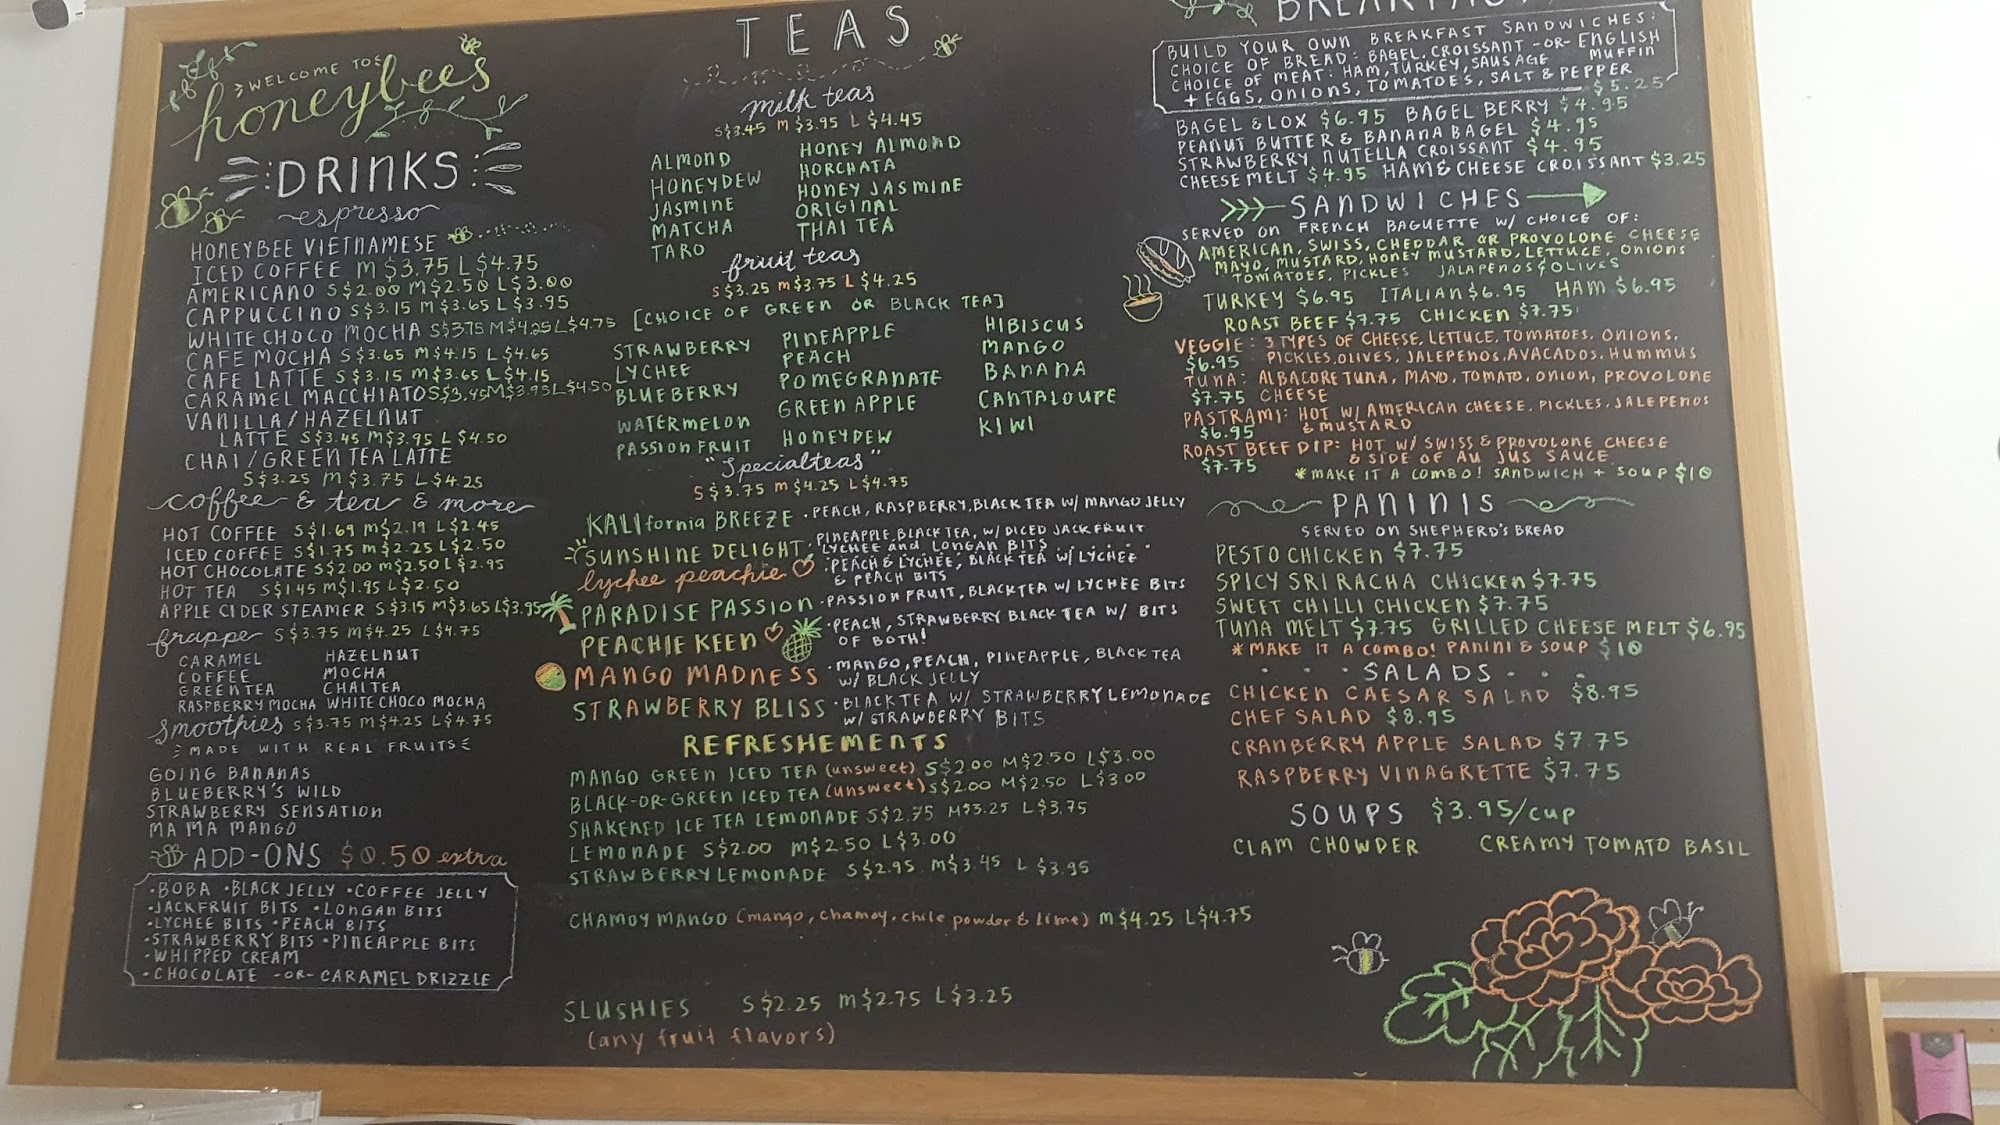 WELCOME TO
honeybees
DRINKS
espresso
HONEYBEE VIETNAMESE
ICED COFFEE M $3.75 L $4.75
AMERICANO S $2.00 M $2.50 L $3.00
CAPPUCCINO S $3.15 M $3.65 L $3.95
WHITE CHOCO MOCHA S $3.75 M $4.25 L $4.75
CAFE MOCHA S $3.65 M $4.15 L $4.65
CAFE LATTE S $3.15 M $3.65 L $4.15
CARAMEL MACCHIATO S $3.45 M $3.95 L $4.50
VANILLA/HAZELNUT
LATTE S $3.45 M $3.95 L $4.50
CHAI/GREEN TEA LATTE
S $3.25 M $3.75 L $4.25
coffee & tea & more
HOT COFFEE S $1.69 M $2.19 L $2.45
ICED COFFEE S $1.75 M $2.25 L $2.50
HOT CHOCOLATE S $2.00 M $2.50 L $2.95
HOT TEA S $1.45 M $1.95 L $2.50
APPLE CIDER STEAMER S $3.15 M $3.65 L $3.95
frappe S $3.75 M $4.25 L $4.75
CARAMEL HAZELNUT
COFFEE MOCHA
GREEN TEA CHAI TEA
RASPBERRY MOCHA WHITE CHOCO MOCHA
smoothies S $3.75 M $4.25 L $4.75
MADE WITH REAL FRUITS
GOING BANANAS
BLUEBERRY'S WILD
STRAWBERRY SENSATION
MA MA MANGO
ADD-ONS $0.50 extra
•BOBA •BLACK JELLY •COFFEE JELLY
•JACKFRUIT BITS •LONGAN BITS
•LYCHEE BITS •PEACH BITS
•STRAWBERRY BITS •PINEAPPLE BITS
•WHIPPED CREAM
•CHOCOLATE -OR- CARAMEL DRIZZLE
TEAS
milk teas
S $3.45 M $3.95 L $4.45
ALMOND HONEY ALMOND
HONEYDEW HORCHATA
JASMINE HONEY JASMINE
MATCHA ORIGINAL
TARO THAI TEA
fruit teas
S $3.25 M $3.75 L $4.25
[CHOICE OF GREEN OR BLACK TEA]
STRAWBERRY PINEAPPLE HIBISCUS
LYCHEE PEACH MANGO
BLUEBERRY POMEGRANATE BANANA
WATERMELON GREEN APPLE CANTALOUPE
PASSION FRUIT HONEYDEW KIWI
"Specialteas"
S $3.75 M $4.25 L $4.75
KALIfornia BREEZE •PEACH, RASPBERRY, BLACK TEA W/ MANGO JELLY
SUNSHINE DELIGHT •PINEAPPLE, BLACK TEA, W/ DICED JACKFRUIT
LYCHEE and LONGAN BITS
lychee peachie •PEACH & LYCHEE, BLACK TEA W/ LYCHEE
& PEACH BITS
PARADISE PASSION •PASSION FRUIT, BLACK TEA W/ LYCHEE BITS
PEACHIE KEEN •PEACH, STRAWBERRY BLACK TEA W/ BITS
OF BOTH!
MANGO MADNESS •MANGO, PEACH, PINEAPPLE, BLACK TEA
W/ BLACK JELLY
STRAWBERRY BLISS •BLACK TEA W/ STRAWBERRY LEMONADE
W/ STRAWBERRY BITS
REFRESHEMENTS
MANGO GREEN ICED TEA (unsweet) S $2.00 M $2.50 L $3.00
BLACK-OR-GREEN ICED TEA (unsweet) S $2.00 M $2.50 L $3.00
SHAKENED ICE TEA LEMONADE S $2.75 M $3.25 L $3.75
LEMONADE S $2.00 M $2.50 L $3.00
STRAWBERRY LEMONADE S $2.95 M $3.45 L $3.95
CHAMOY MANGO (mango, chamoy, chile powder & lime) M $4.25 L $4.75
SLUSHIES S $2.25 M $2.75 L $3.25
(any fruit flavors)
BUILD YOUR OWN BREAKFAST SANDWICHES:
CHOICE OF BREAD: BAGEL, CROISSANT -OR- ENGLISH
MUFFIN
CHOICE OF MEAT: HAM, TURKEY, SAUSAGE
+ EGGS, ONIONS, TOMATOES, SALT & PEPPER
$5.25
BAGEL & LOX $6.95 BAGEL BERRY $4.95
PEANUT BUTTER & BANANA BAGEL $4.95
STRAWBERRY NUTELLA CROISSANT $4.95
CHEESE MELT $4.95 HAM & CHEESE CROISSANT $3.25
SANDWICHES
SERVED ON FRENCH BAGUETTE W/ CHOICE OF:
AMERICAN, SWISS, CHEDDAR OR PROVOLONE CHEESE
MAYO, MUSTARD, HONEY MUSTARD, LETTUCE, ONIONS
TOMATOES, PICKLES JALAPENOS & OLIVES
TURKEY $6.95 ITALIAN $6.95 HAM $6.95
ROAST BEEF $7.75 CHICKEN $7.75
VEGGIE: 3 TYPES OF CHEESE, LETTUCE, TOMATOES, ONIONS,
$6.95 PICKLES, OLIVES, JALEPENOS, AVACADOS, HUMMUS
TUNA: ALBACORE TUNA, MAYO, TOMATO, ONION, PROVOLONE
$7.75 CHEESE
PASTRAMI: HOT W/ AMERICAN CHEESE, PICKLES, JALEPENOS
$6.95 & MUSTARD
ROAST BEEF DIP: HOT W/ SWISS & PROVOLONE CHEESE
$7.75 & SIDE OF AU JUS SAUCE
*MAKE IT A COMBO! SANDWICH + SOUP $10
PANINIS
SERVED ON SHEPHERD'S BREAD
PESTO CHICKEN $7.75
SPICY SRIRACHA CHICKEN $7.75
SWEET CHILLI CHICKEN $7.75
TUNA MELT $7.75 GRILLED CHEESE MELT $6.95
*MAKE IT A COMBO! PANINI & SOUP $10
SALADS
CHICKEN CAESAR SALAD $8.95
CHEF SALAD $8.95
CRANBERRY APPLE SALAD $7.75
RASPBERRY VINAGRETTE $7.75
SOUPS $3.95/cup
CLAM CHOWDER CREAMY TOMATO BASIL